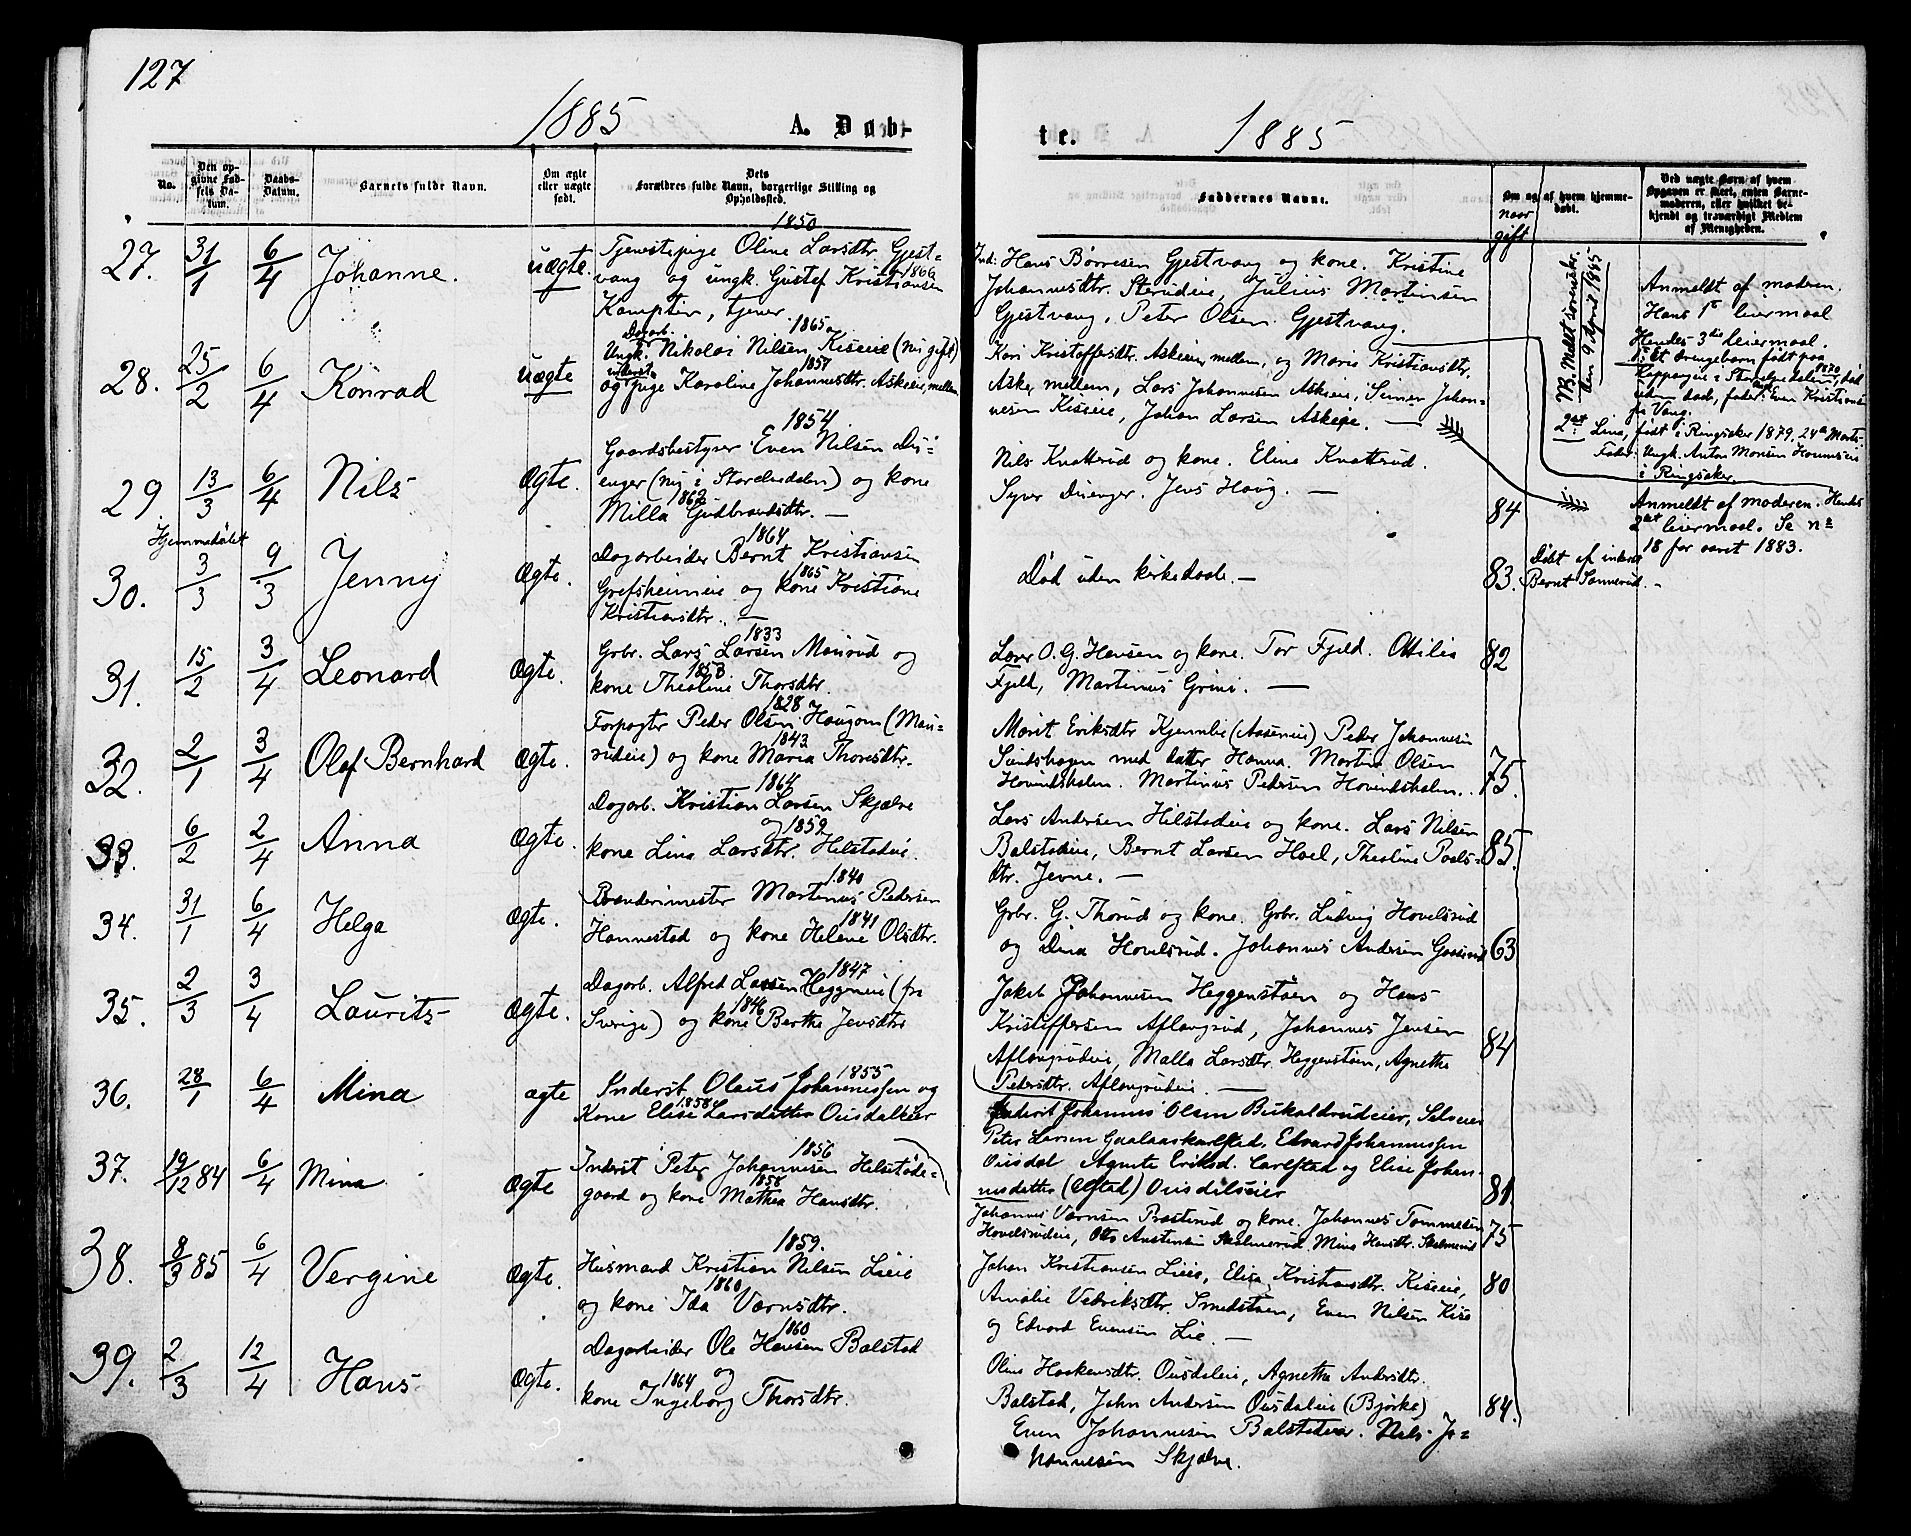 127
1885
A. Døb-
No.
Den opgivne Fødsels Datum.
Daabs-Datum.
Barnets fulde Navn.
Om ægte eller uægte født.
Dets Forældres fulde Navn, borgerlige Stilling og Opholdssted.
27. 31/1 6/4 Johanne. uægte.
1850
Tjenestepige Oline Larsdtr. Gjest-
vang og ungk. Gustaf Kristiansen
1866
Kampten, tjener.
28. 25/2 6/4 Konrad uægte
Dagarb. 1865
Ungk. Nikolai Nilsen Kiseeie (nu gift)
inderst 1857
og pige Karoline Johannesdtr. Askeeie, mellem
29. 13/3 6/4 Nils Ægte.
1854
Gaardsbestyrer Even Nilsen Du-
enger (nu i Storelvedalen) og kone
1862
Milla Gudbrandsdtr. —
Hjemmedøbt
30. 3/3 9/3 Jenny Ægte.
1864
Dagarbeider Bernt Kristiansen
1865
Grefsheimeie og kone Kristiane
Kristiansdtr. —
31. 15/2 3/4 Leonard Ægte.
1833
Grbr. Lars Larsen Maurud og
1853
kone Theoline Thorsdtr.
32. 2/1 3/4 Olaf Bernhard Ægte.
1828
Forpagter Peder Olsen Haugom (Mau-
1843
rudeie) og kone Maria Thoresdtr.
33. 6/2 2/4 Anna Ægte.
1864
Dagarb. Kristian Larsen Skjelve
og 1859
kone Lina Larsdtr. Helstadeie.
34. 31/1 6/4 Helga Ægte.
1840
Brænderimester Martinus Pedersen
1841
Hannestad og kone Helene Olsdtr.
35. 2/3 3/4 Laurits Ægte.
1847
Dagarb. Alfred Larsen Heggeneie (fra
1846
Sverige) og kone Berthe Jensdtr
36. 28/1 6/4 Mina ægte
1855
Inderst Olaus Johannessen og
1858
Kone Elise Larsdatter Ousdaleier
37. 19/12 84 6/4 Mina Ægte
1856
Inderst Peter Johannesen Helstade-
1858
gaard og kone Mathea Hansdtr.
38. 8/3 85 6/4 Vergine Ægte.
1859.
Husmand Kristian Nilsen Lieie
1860
og kone Ida Værnsdtr.
39. 2/3 12/4 Hans Ægte.
1860
Dagarbeider Ole Hansen Balstad
1864 og
kone Ingeborg Thorsdtr.
te. 1885
Faddernes Navne.
Om og af hvem hjemmedøbt.
naar gift
Ved uægte Børn af hvem Opgaven er skeet, enten Barnemoderen, eller hvilket bekjendt og troværdigt Medlem af Menigheden.
Ind: Hans Børresen Gjestvang og kone. Kristine
Johannesdtr. Sterudeie, Julius Martinsen
Gjestvang, Peter Olsen Gjestvang.
NB. Meldt sorenskr.
den 9 April 1885
Anmeldt af moderen.
Hans 1ste leiermaal
Hendes 3die leiermaal.
Kari Kristoffersdtr. Askeeie, mellem, og Marie Kristiansdtr.
Asker, mellem, Lars Johannesen Askeeie, Simen Johan-
nesen Kiseeie, Johan Larsen Askeeie. —
1. Et drengebarn født paa
i Storelvedalen, 1870, død
uden daab, fader: Even Kristiansen
fr Vang.
2det Lina, født i Ringsaker 1879, 24de Marts.
Fader: Ungk. Anton Monsen
i Ringsaker
Nils Knatterud og kone. Eline Knatterud.
Syver Duenger. Jens Haug. — 84
Anmeldt af moderen. Hendes
2det leiermaal. Se no
18 for aaret 1883.
Død uden kirkedaab. — 83.
Døbt af inderst
Bernt Sannerud. —
Lærer O. G. Hansen og kone. Tor Fjeld. Otilie 82
Fjeld, Martinus Grini. —
Marit Eriksdtr Kjernlie (Aaseneie) Peder Johannesen
Sundshagen med datter Hanna. Martin Olsen
Hovindsholm. Martinus Pedersen Hovindsholm. 75.
Lars Andersen Hilstadeie og kone. Lars Nilsen
Balstadeie, Bernt Larsen Hoel, Theoline Pauls- 85.
dtr. Jevne. —
Grbr. G. Thorud og kone. Grbr. Ludvig Hovelsrud
og Dina Hovelsrud. Johannes Andersen 63
Jakob Johannesen Heggenstøen og Hans
Kristoffersen Aflangrud, Johannes Jensen 84
Aflangrudeie, Malla Larsdtr. Heggenstøen, Agnethe
Pedersdtr. Aflangrudeie. —
Inderst Johannes Olsen
Peter Larsen Gaalaaskarlstad, Edvard Johannessen
Ousdal Agnete Eriksd. Carlstad og Elise Johan-
nesdatter (Alstad) Ousdalseier 81
Johannes Værnsen Præsterud og kone. Johannes Tommesen 75
Hovelsrudeie, Otto Austinsen Skolmerud Mina Hansdtr. Skolmerud
Johan Kristiansen Lieie, Elise Kristiansdtr. Kiseeie, 80
Amalie Vedriksdtr. Smedstuen, Even Nilsen Kise
og Edvard Evensen Lie. —
Oline Haakensdtr. Ousdaleie, Agnethe Andersdtr.
Balstad, John Andersen Ousdaleie (Bjørke) 84.
Even Johannesen Balstadeie. Nils Jo-
hannesen Skjelve.